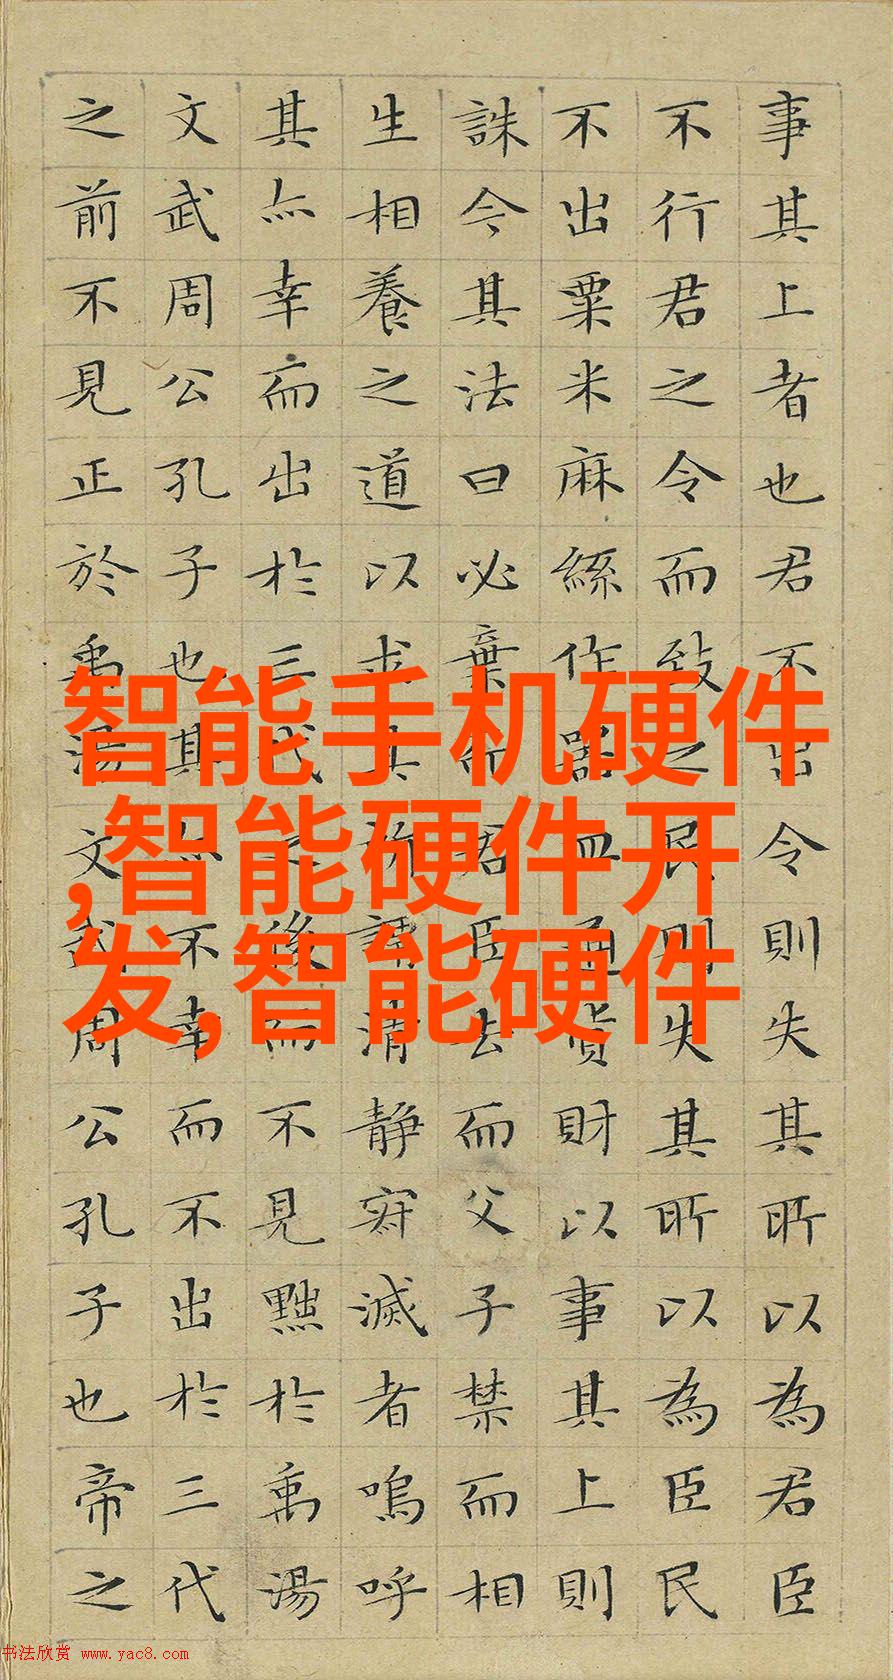 事其上者也君不出令則失其所以為君臣
不行君之令而致之民則失其所以為臣民
不出粟米麻絲作器皿通貨財以事其上則
誅今其法曰必棄而君臣去而父子禁而相
生相養之道以求其所謂清静寂滅者嗚呼
其亦幸而出於三代之後而不見黜於禹湯
文武周公孔子也其亦不幸而不出於三代
之前不見正於禹湯文武周公孔子也帝之
智能手机硬件
,智能硬件开
发,智能硬件
书法欣赏 www.yac8.com